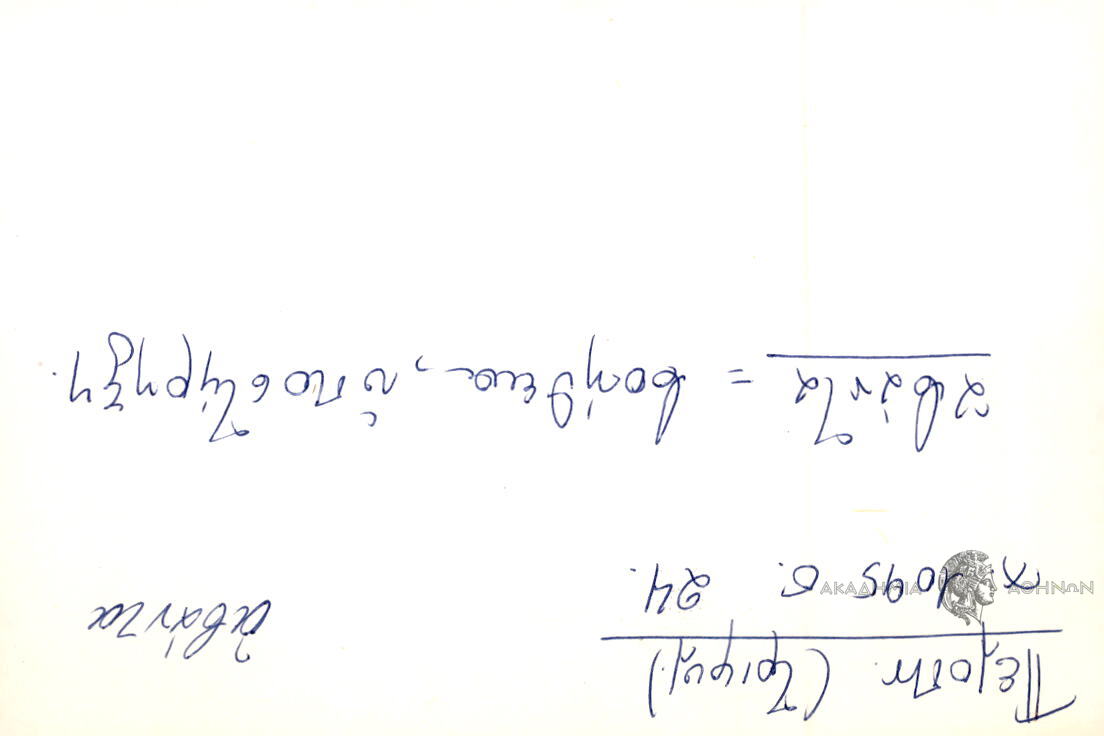 Πελοπν. (Τριφυλ.)
χ. 1095 σ. 24.
ἀβάντα
ἀβάντα = βοήθεια, ὑποστήριξη.
ΑΚΑΔΗΜΙΑ ΑΘΗΝΩΝ